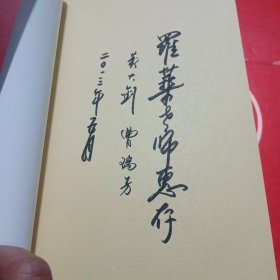 羅華老师惠存
黄大釗 曹瑞芳
二〇一三年五月